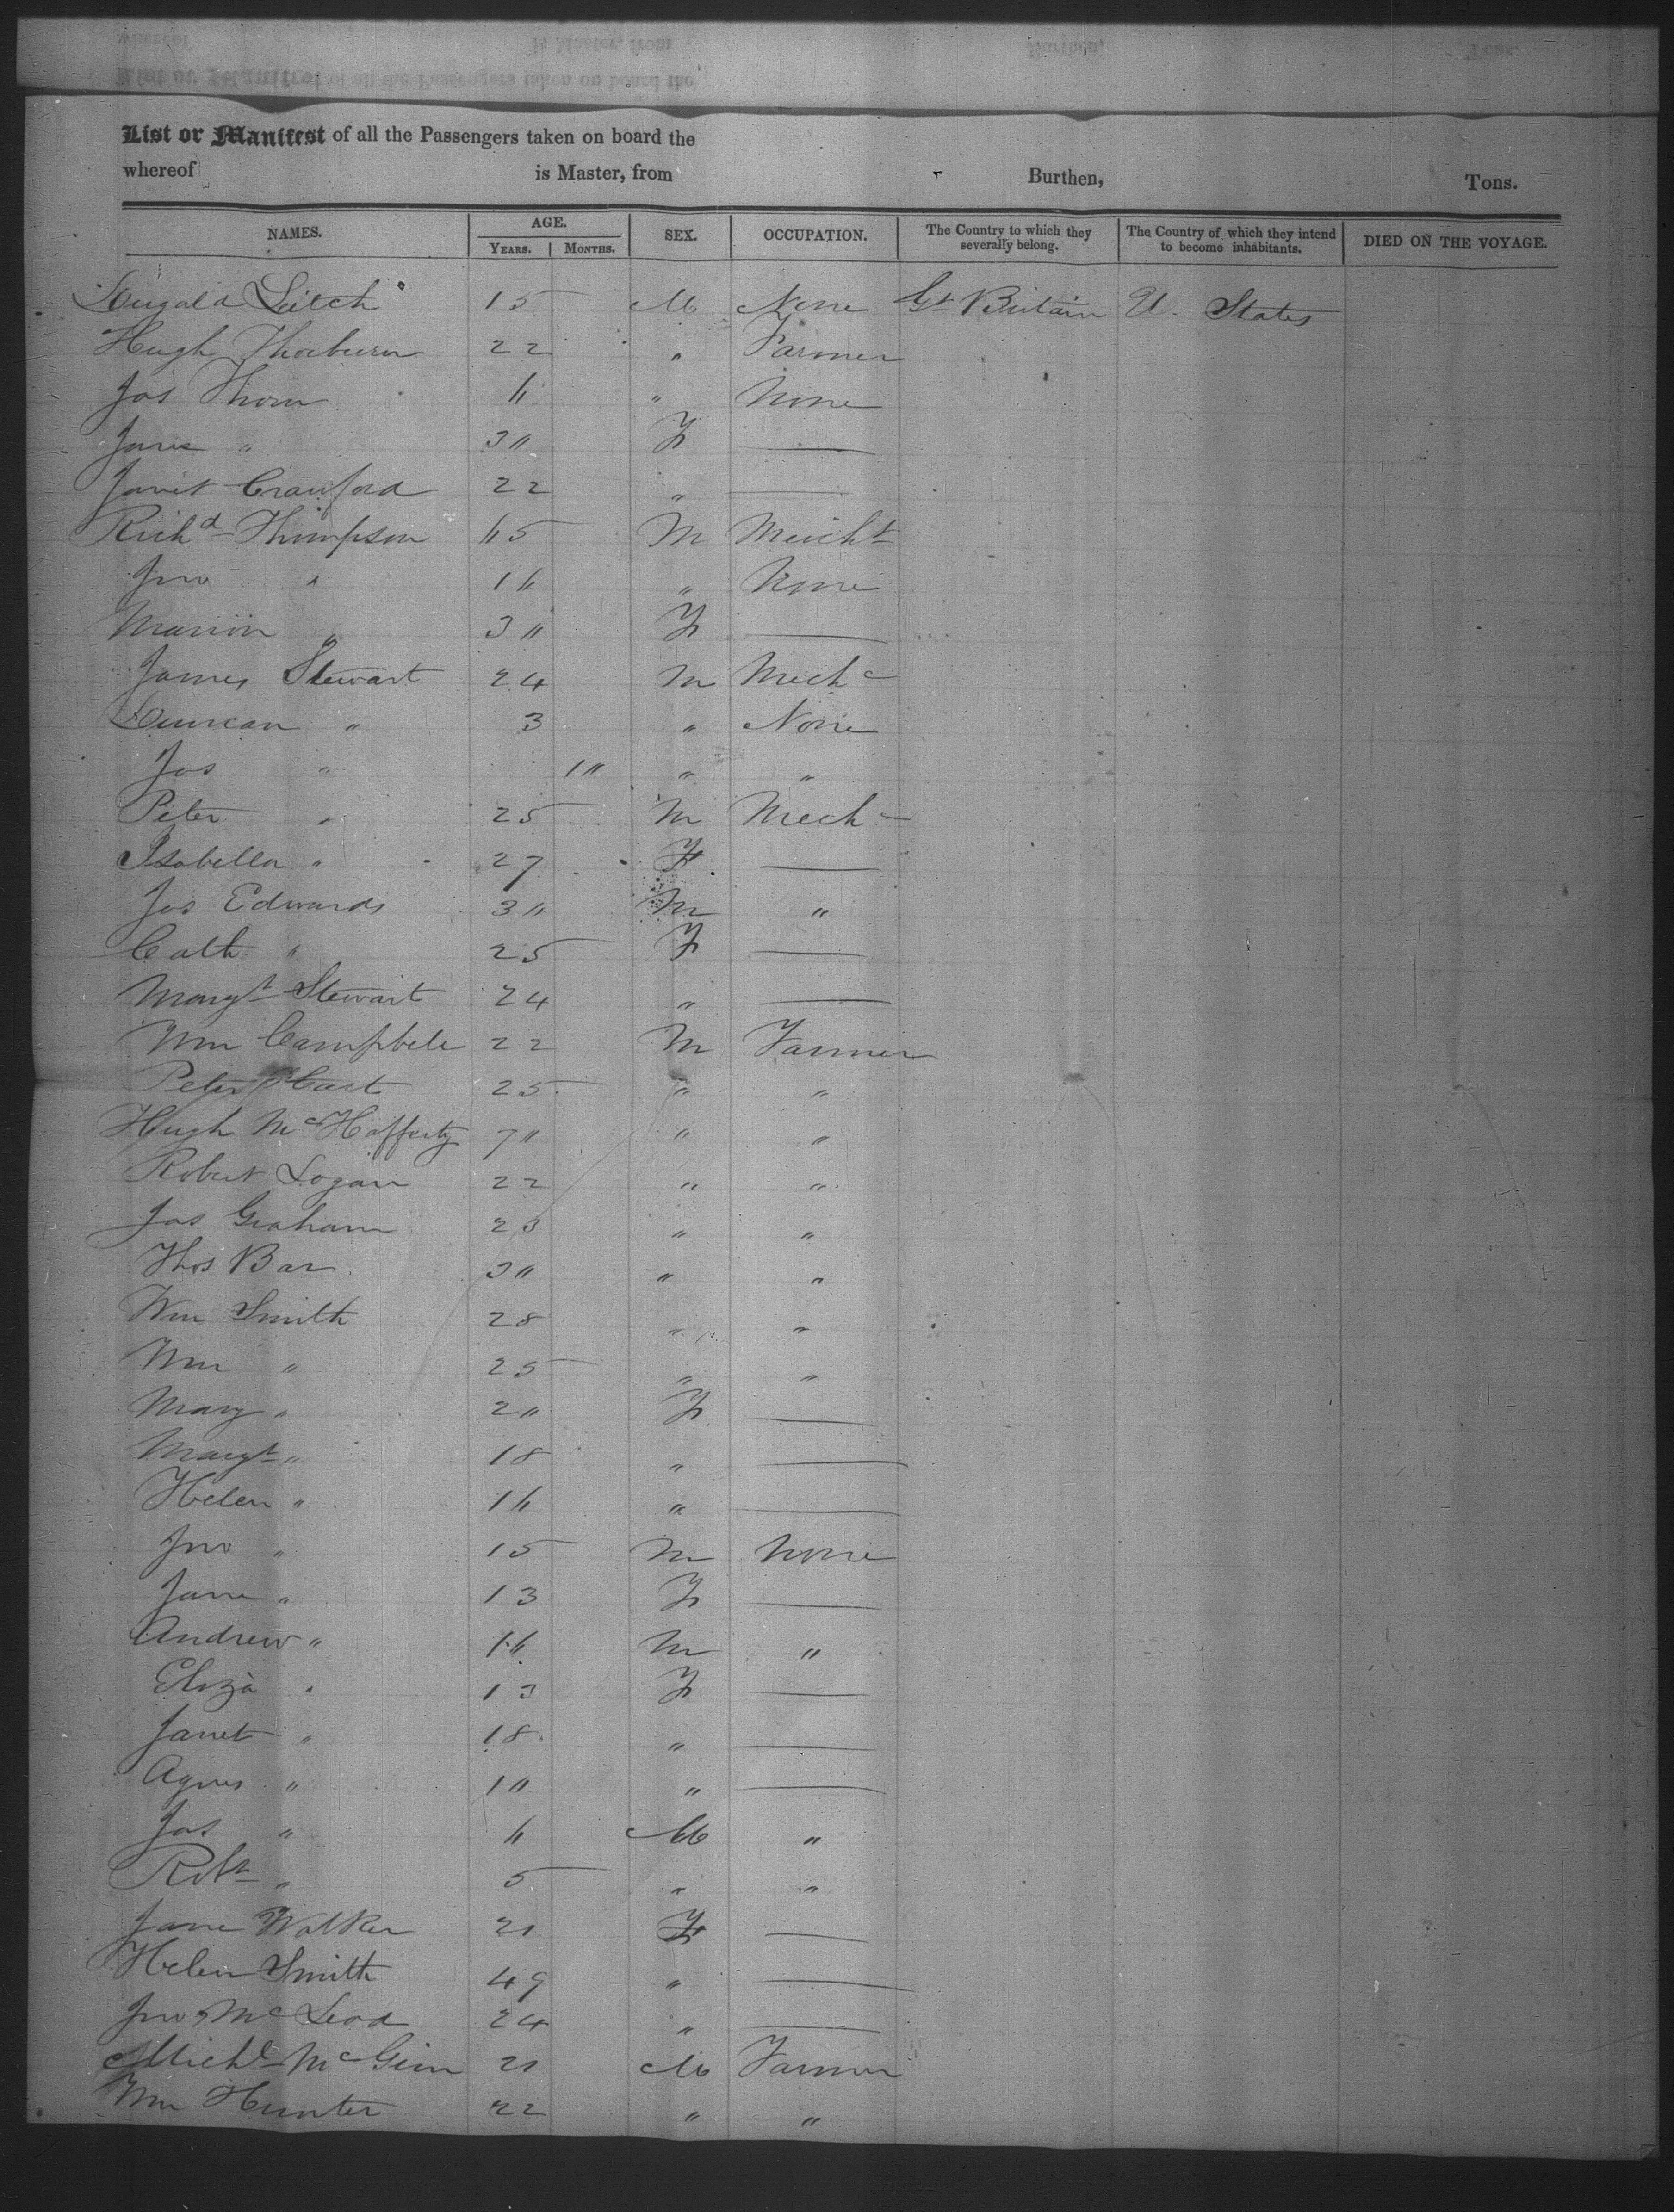 List or Manifest of all the Passengers taken on board the
whereof is Master, from Burthen, Tons.
NAMES. AGE. YEARS. MONTHS. SEX. OCCUPATION. The Country to which they severally belong. The Country of which they intend to become inhabitants. DIED ON THE VOYAGE.
Dugald Leitch 15 M None Gt Britain U. States
Hugh Thorburn 22 " Farmer
Jas Thom 6 " None
Jane " 30 F —
Janet Crawford 22 " —
Richd Thompson 65 M Mercht
Jno " 16 " None
Marion " 30 F —
James Stewart 24 M Mechc
Duncan " 3 " None
Jas " 10 " "
Peter " 25 M Mech
Isabella " 27 F —
Jas Edwards 30 M "
Cath " 25 F —
Margt Stewart 24 " —
Wm Campbell 22 M Farmer
Peter 25 " "
Hugh McHafferty 70 " "
Robert Logan 22 " "
Jas Graham 23 " "
Thos Bar 30 " "
Wm Smith 28 " "
Wm " 25 " "
Mary " 20 F —
Margt " 18 " —
Helen " 16 " —
Jno " 15 M None
Jane " 13 F —
Andrew " 16 M "
Eliza " 13 F —
Janet " 18 " —
Agnes " 10 " —
Jas " 6 M "
Robt " 5 " "
Jane Walker 21 F —
Helen Smith 49 " —
Jno McLeod 24 " —
Michl McGinn 21 M Farmer
Wm Hunter 22 " "